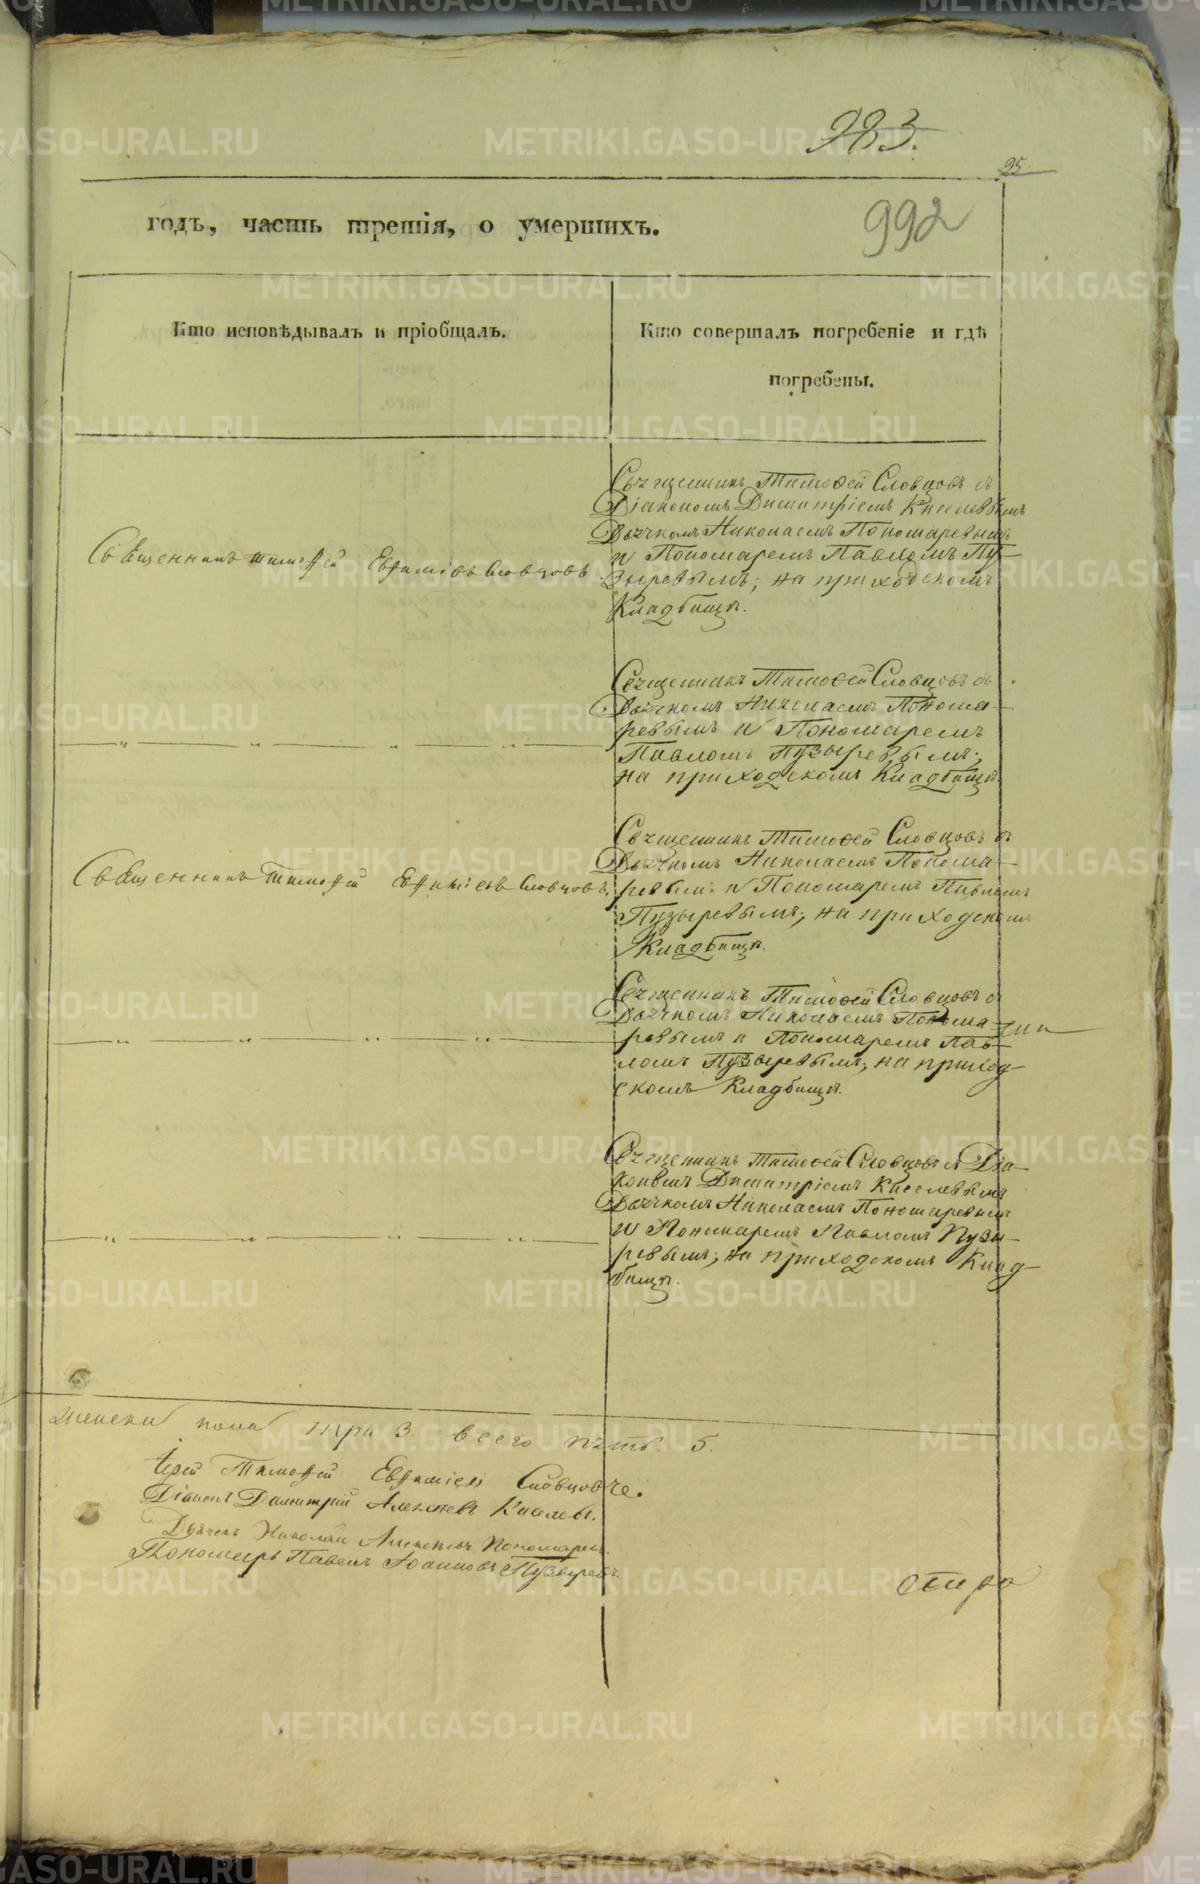 983.
25
992
годъ, часть третія, о умершихъ.
Кто исповѣдывалъ и пріобщалъ.
Кто совершалъ погребеніе и гдѣ
погребены.
Священникъ Тимофей Евфиміевъ Словцовъ
Священникъ Тимоѳей Словцовъ съ
Діакономъ Димитріемъ Киселевымъ
Дьячкомъ Николаемъ Пономаревымъ
и Пономаремъ Павломъ Пу-
зыревымъ; на приходскомъ
Кладбищѣ.
Священникъ Тимоѳей Словцовъ съ
Дьячкомъ Николаемъ Понома-
ревымъ и Пономаремъ
Павломъ Пузыревымъ;
на приходскомъ Кладбищѣ.
Священникъ Тимофей Евфиміевъ Словцовъ
Священникъ Тимоѳей Словцовъ съ
Дьячкомъ Николаемъ Понома-
ревымъ и Пономаремъ Павломъ
Пузыревымъ; на приходскомъ
Кладбищѣ.
Священникъ Тимоѳей Словцовъ съ
Дьячкомъ Николаемъ Понома-
ревымъ и Пономаремъ Пав-
ломъ Пузыревымъ; на приход-
скомъ Кладбищѣ.
Священникъ Тимоѳей Словцовъ съ Діа-
кономъ Димитріемъ Киселевымъ
Дьячкомъ Николаемъ Пономаревымъ
и Пономаремъ Павломъ Пузы-
ревымъ; на приходскомъ Клад-
бищѣ.
женска пола три 3. всего пять 5.
Іерей Тимофей Евфиміевъ Словцовъ.
Діаконъ Димитрій Алексѣевъ Киселевъ.
Дьячекъ Николай Алексѣевъ Пономаревъ.
Пономарь Павелъ Іоанновъ Пузыревъ.
METRIKI.GASO-URAL.RU